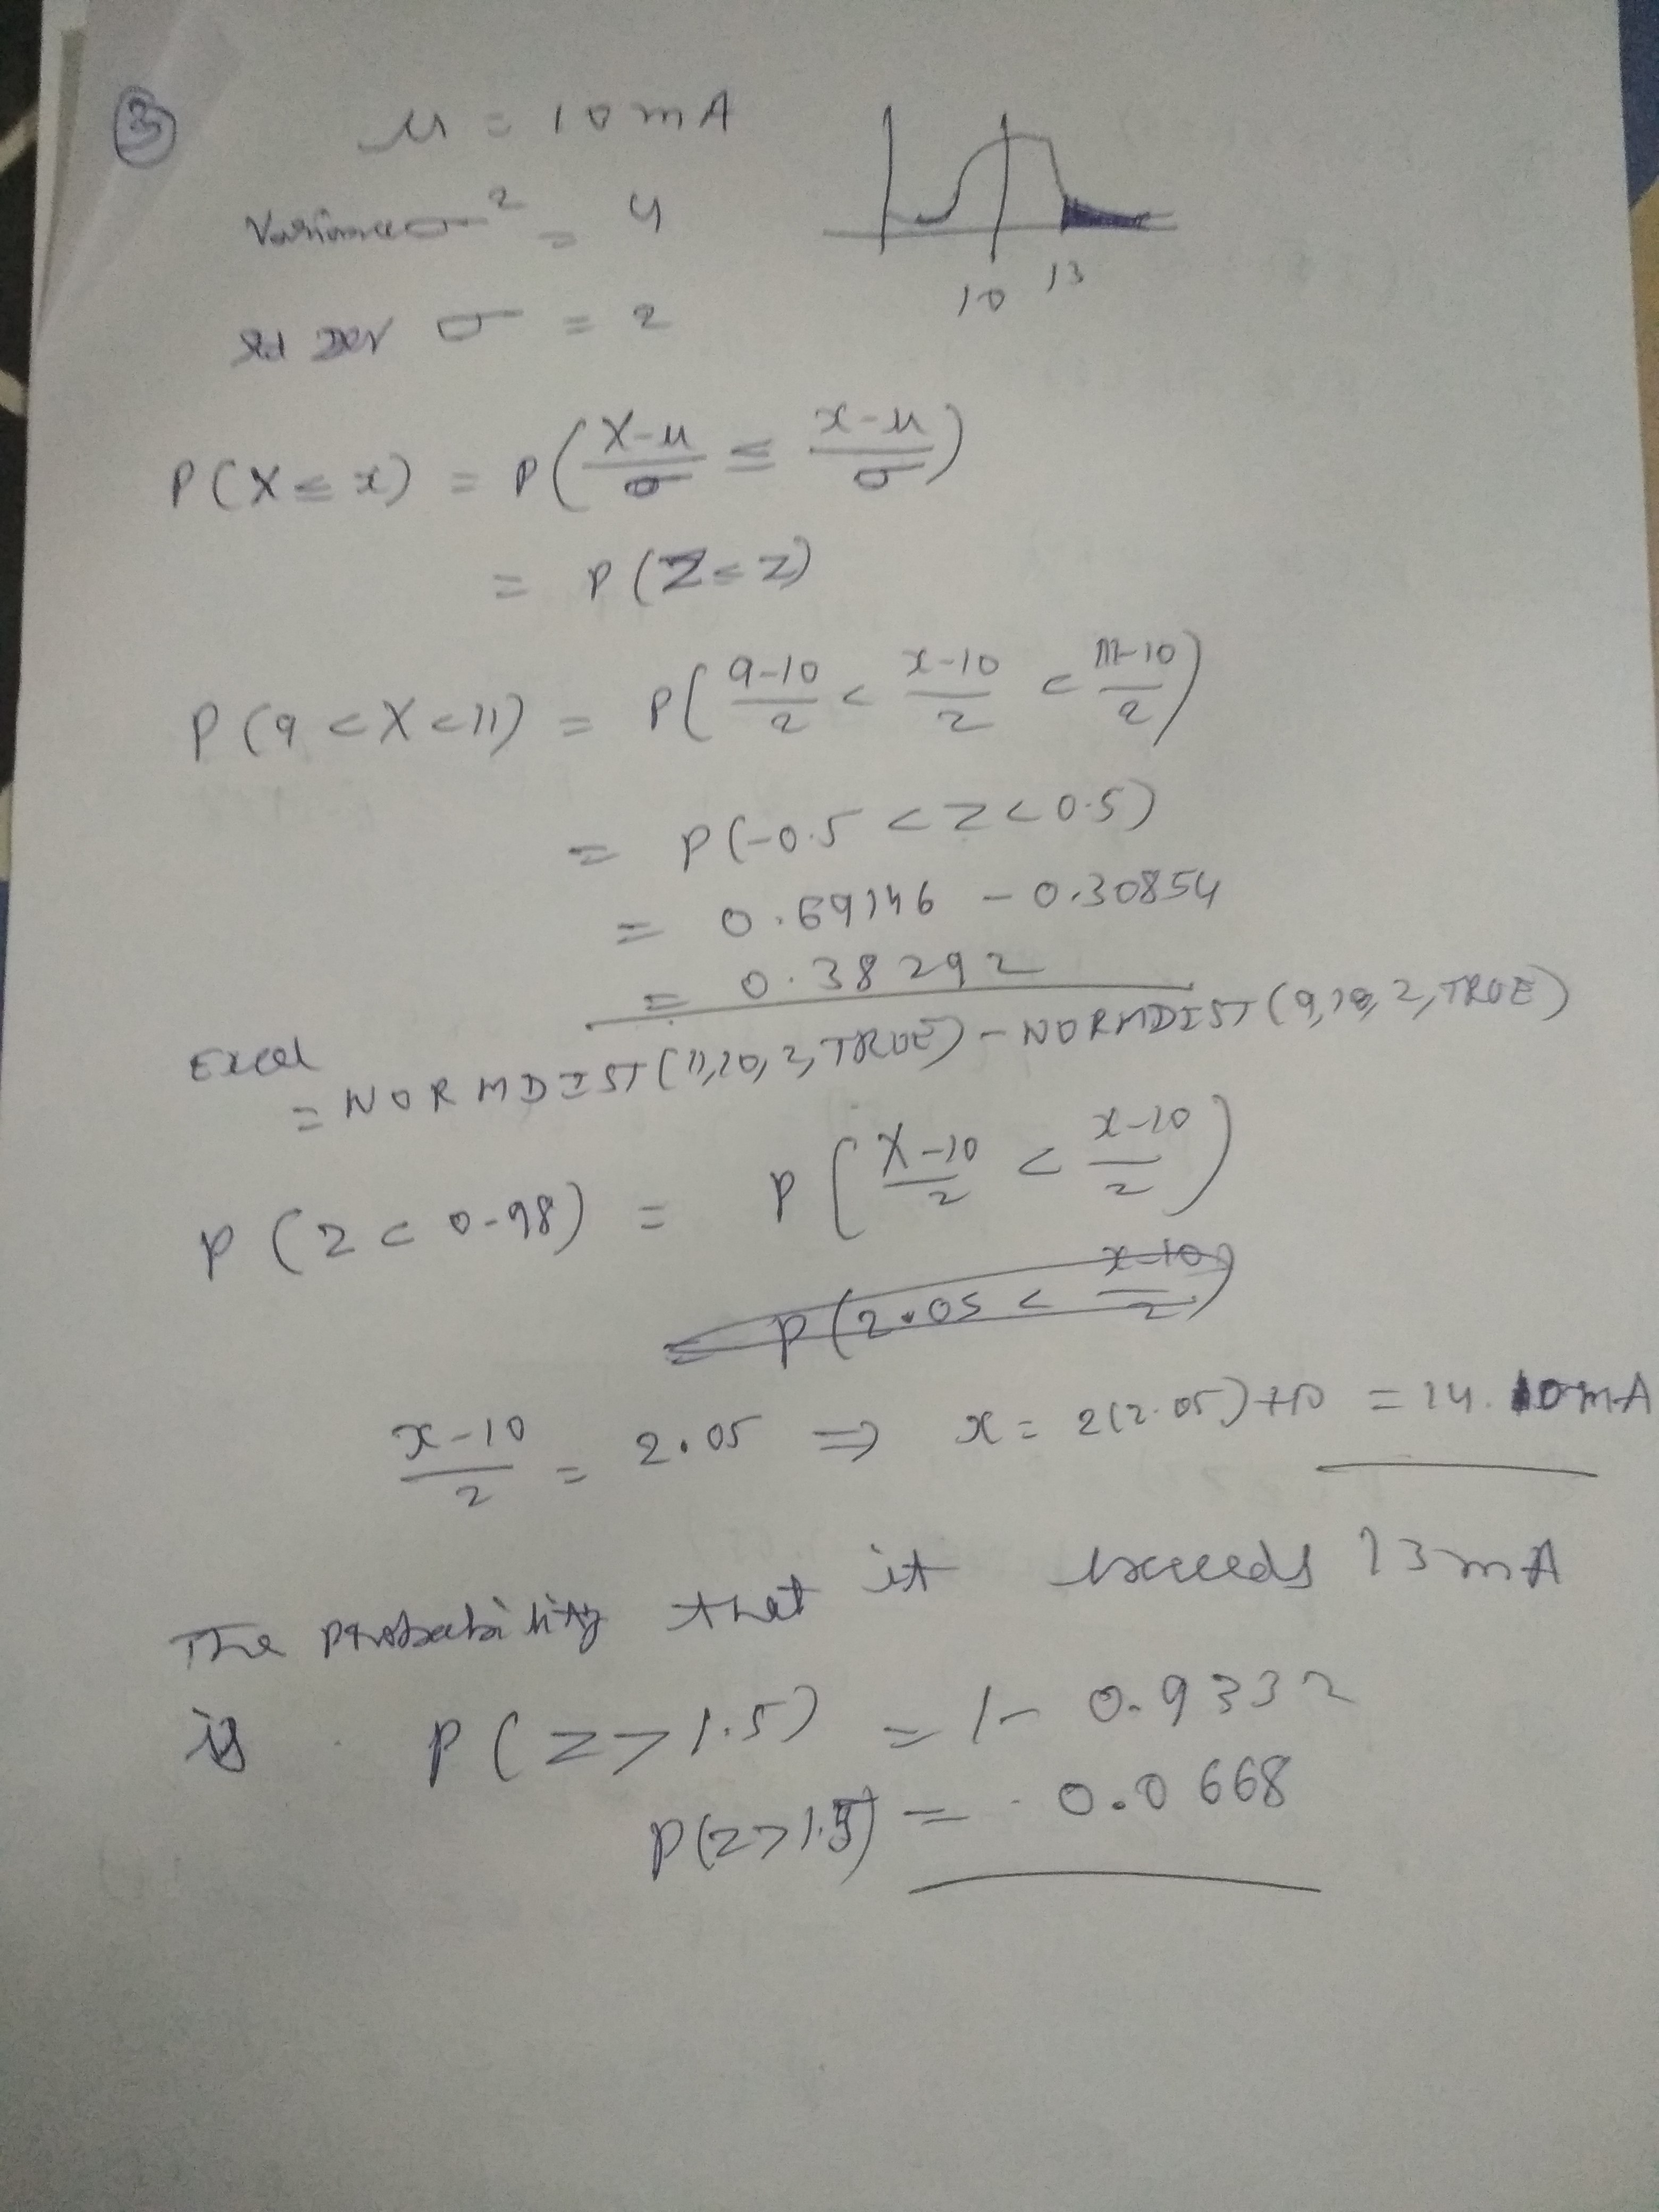 ③ μ = 10 mA
Variance σ² = 4
Std Dev σ = 2
10 13
P(X ≤ x) = P((X-μ)/σ ≤ (x-μ)/σ)
= P(Z ≤ z)
P(9 < X < 11) = P((9-10)/2 < (x-10)/2 < (11-10)/2)
= P(-0.5 < Z < 0.5)
= 0.69146 - 0.30854
= 0.38292
Excel
= NORMDIST(11,10,2,TRUE) - NORMDIST(9,10,2,TRUE)
P(Z < 0.98) = P((X-10)/2 < (x-10)/2)
= P(2.05 < (x-10)/2)
(x-10)/2 = 2.05 ⇒ x = 2(2.05)+10 = 14.10mA
The Probability that it exceeds 13mA
is P(Z > 1.5) = 1 - 0.9332
P(Z > 1.5) = 0.0668